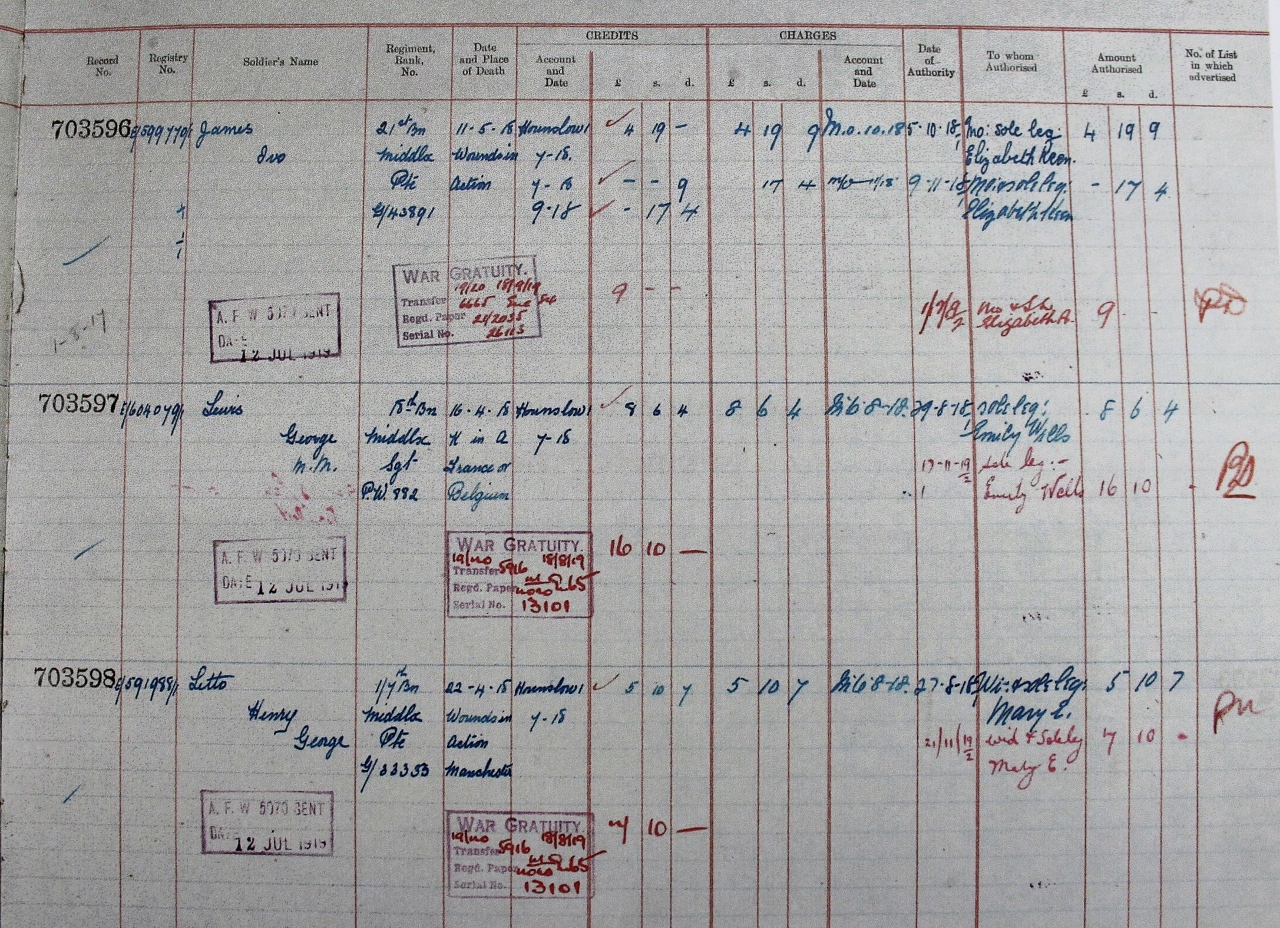 CREDITS CHARGES
Record No. Registry No. Soldier's Name Regiment, Rank, No. Date and Place of Death Account and Date £ s. d. £ s. d. Account and Date Date of Authority To whom Authorised Amount Authorised £ s. d. No. of List in which advertised
703596 E/599770/1 James 21st Bn 11-5-18 Hounslow 1 4 19 - 4 19 9 M.O. 10.18 5-10-18 Mo: sole leg:
Ivo Middlx Wounds in 7-18. Elizabeth Keen. 4 19 9
Pte Action 7-18 - - 9 17 4 9-11-18 Mo: sole leg: - 17 4
G/43891 9-18 - 17 4 Elizabeth Keen
WAR GRATUITY.
19/20 18/9/19
Transfer 6665
Regd. Paper 21/2035
Serial No.
9 - -
Elizabeth A. 9 - -
A. F. W 5070 SENT
DATE 12 JUL 1919
1-8-17
703597 E/604079/1 Lewis 18th Bn 16-4-18 Hounslow 1 8 6 4 8 6 4 29-8-18 sole leg: 8 6 4
George Middlx K in A 7-18 Emily Wells
M.M. Sgt France or 17-11-19 sole leg:-
P.W. 882 Belgium Emily Wells 16 10 -
WAR GRATUITY.
18/8/19
Transfer 5916
Regd. Paper
Serial No. 13101
16 10 —
A. F. W 5070 SENT
DATE 12 JUL 191
703598 E/591988/1 Letto 1/7th Bn 22-4-18 Hounslow 1 5 10 7 5 10 7 27-8-18 Wi: sole leg: 5 10 7
Henry Middlx Wounds in 7-18 Mary E.
George Pte Action 21/11/19 Wid & Sole leg 7 10 -
G/33353 Manchester Mary E.
WAR GRATUITY.
18/8/19
Transfer 5916
Regd. Paper
Serial No. 13101
7 10 —
A. F. W 5070 SENT
DATE 12 JUL 1919